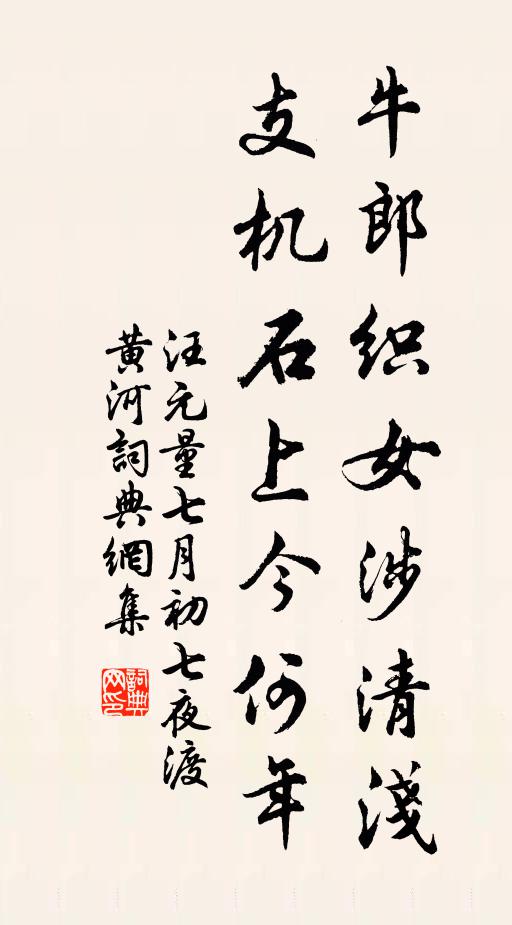 牛郎织女涉清淺
支机石上今何年
汪元量七月初七夜渡
黄河詞典網集
詞典网印